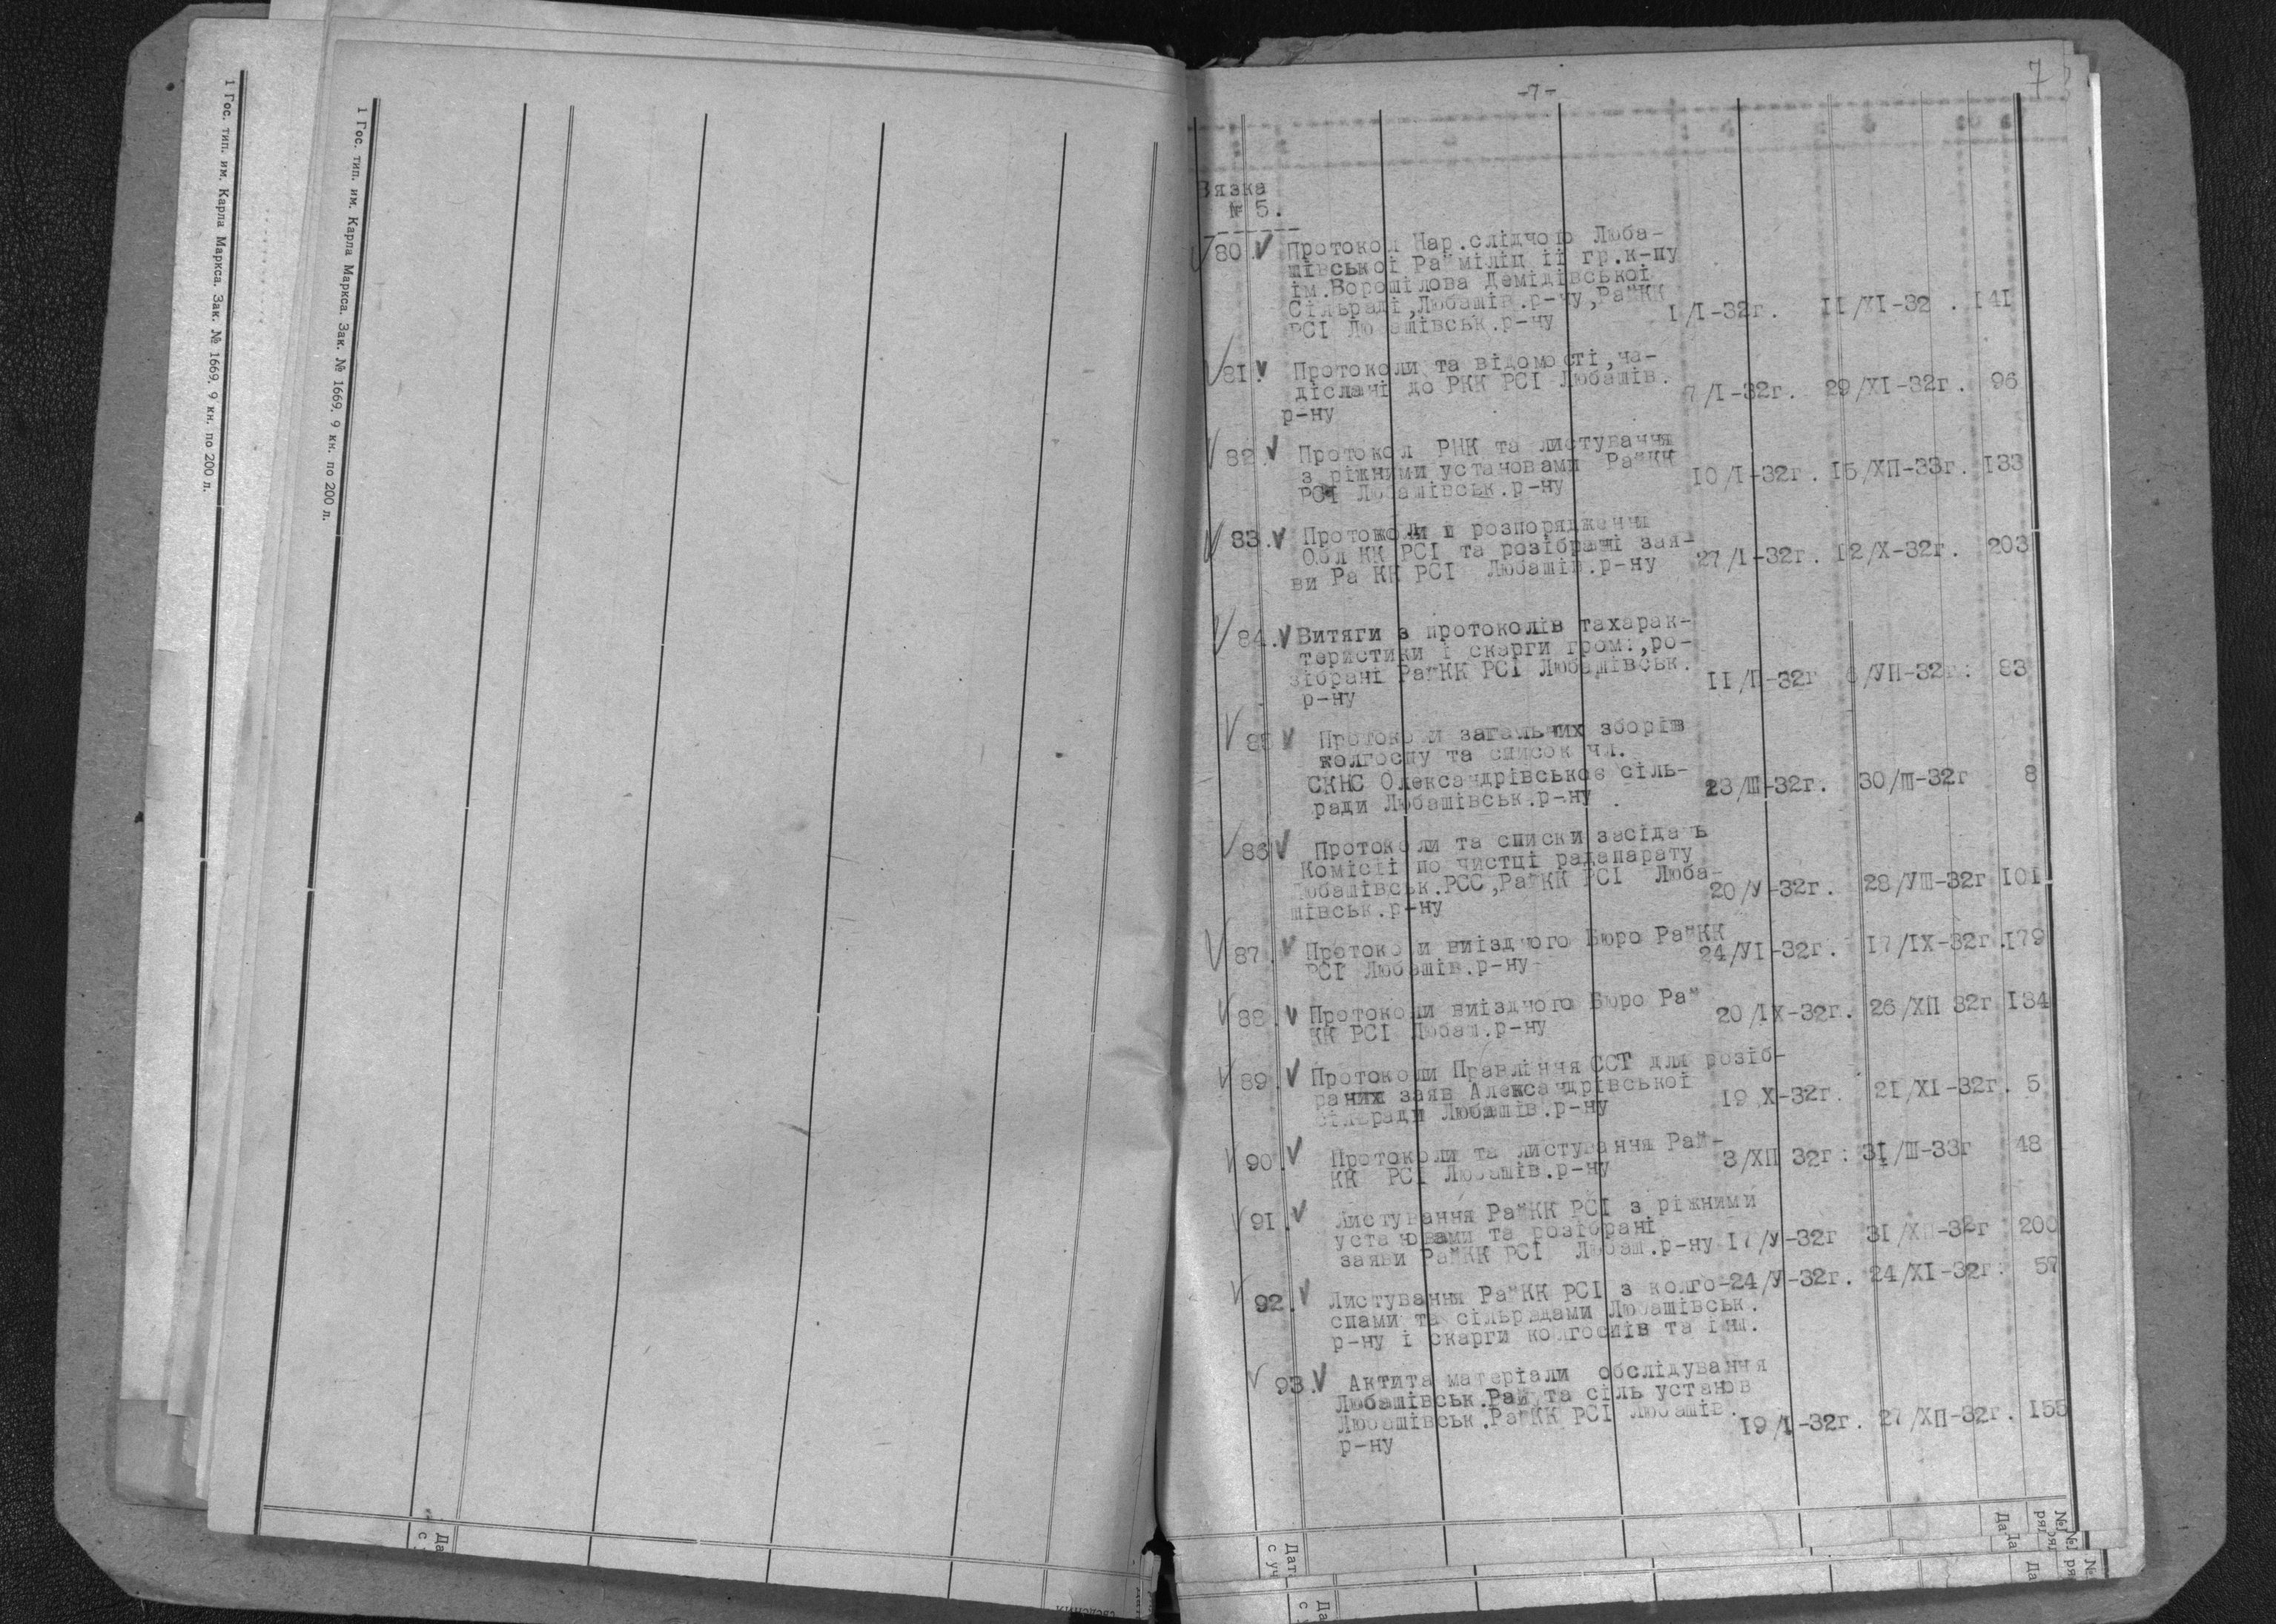 1 Гос. тип. им. Карла Маркса. Зак. № 1669. 9 кн. по 200 л.
1 Гос. тип. им. Карла Маркса. Зак. № 1669. 9 кн. по 200 л.
Да
с
-7-
7
Вязка
№ 5.
80. Протокол Нар.слідчою Люба-
шівської Рай міліц ії гр.к-пу
ім.Ворошілова Демідівської
Сільраді,Любашів.р-ну,РайКК
РСІ Любашівськ.р-ну 1/I-32г. II/УI-32 . I4I
81. Протоколи та відомості,на-
діслані до РКК РСІ Любашів.
р-ну 7/I-32г. 29/XI-32г. 96
82. Протокол РНК та листування
з ріжними установами РайКК
РСІ Любашівськ.р-ну I0/I-32г. I5/ХП-33г. I33
83. Протоколи и розпорядження
Обл КК РСІ та розібрані зая-
ви Ра КК РСІ Любашів.р-ну 27/I-32г. I2/X-32г. 203
84. Витяги з протоколів тахарак-
теристики і скарги гром:,ро-
зібрані РайКК РСІ Любашівськ.
р-ну II/П-32г /УП-32г: 83
85 Протоколи загальних зборів
колгоспу та список чл.
СКНС Олександрівськоє сіль-
ради Любашівськ.р-ну . 23/Ш-32г. 30/Ш-32г 8
86 Протоколи та списки засідань
Комісії по чистці радапарату
Любашівськ.РСС,РайКК РСІ Люба-
шівськ.р-ну 20/У-32г. 28/УШ-32г I0I
87. Протоколи виіздного Бюро РайКК
РСІ Любашів.р-ну 24/УI-32г. I7/IX-32г.I79
88. Протоколи виіздного Бюро Рай
КК РСІ Любаш.р-ну 20/IX-32г. 26/ХП 32г I34
89. Протоколи Правління ССТ для розіб-
раних заяв Александрівської
сільради Любашів.р-ну I9 X-32г. 2I/XI-32г. 5
90. Протоколи та листування Рай-
КК РСІ Любашів.р-ну 3/ХП 32г: 3I/Ш-33г 48
91. Листування РайКК РСІ з ріжними
установами та розібрані
заяви РайКК РСІ Любаш.р-ну I7/У-32г 3I/ХП-32г 200
92. Листування РайКК РСІ з колго-24/У-32г. 24/XI-32г: 57
спами та сільрадами Любашівськ.
р-ну і скарги колгоспів та інш.
93. Актита матеріали обслідування
Любашівськ.Рай та сіль установ
Любашівськ.РайКК РСІ Любашів.
р-ну I9/I-32г. 27/ХП-32г. I55
Дат
с уч
Да
с